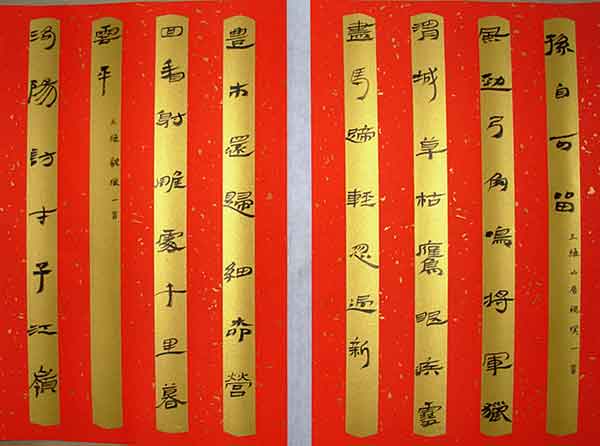 孫自可留
王維山居秋暝一首
風勁弓角鳴將軍獵
渭城草枯鷹眼疾雪
盡馬蹄輕忽過新
豊市還歸細柳營
回看射雕處千里暮
雲平
王維觀獵一首
洛陽訪才子江嶺